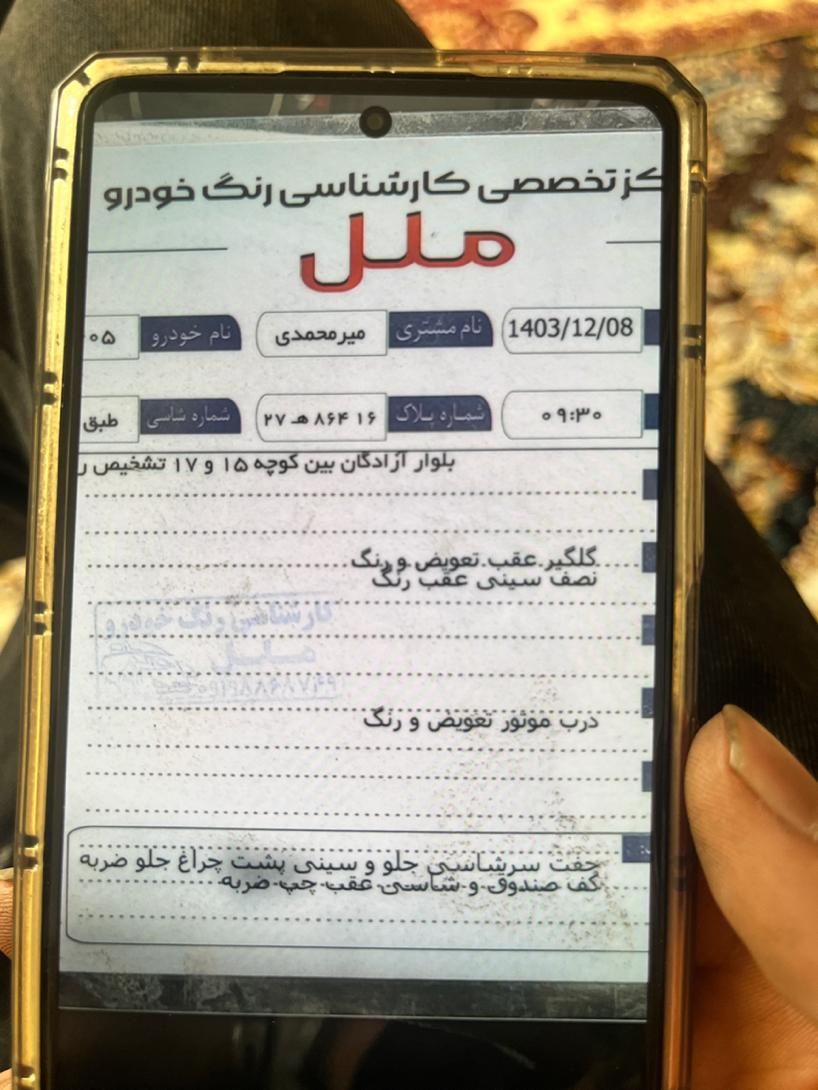 کز تخصصی کارشناسی رنگ خودرو
ملل
1403/12/08 نام مشتری میرمحمدی نام خودرو ۰۵
۰۹:۳۰ شماره پلاک ۱۶ ۸۶۴ هـ ۲۷ شماره شاسی طبق
بلوار آزادگان بین کوچه ۱۵ و ۱۷ تشخیص ر
گلگیر عقب تعویض و رنگ
نصف سینی عقب رنگ
کارشناسی رنگ خودرو
ملل
درب موتور تعویض و رنگ
جفت سرشاسی جلو و سینی پشت چراغ جلو ضربه
کف صندوق و شاسی عقب چپ ضربه